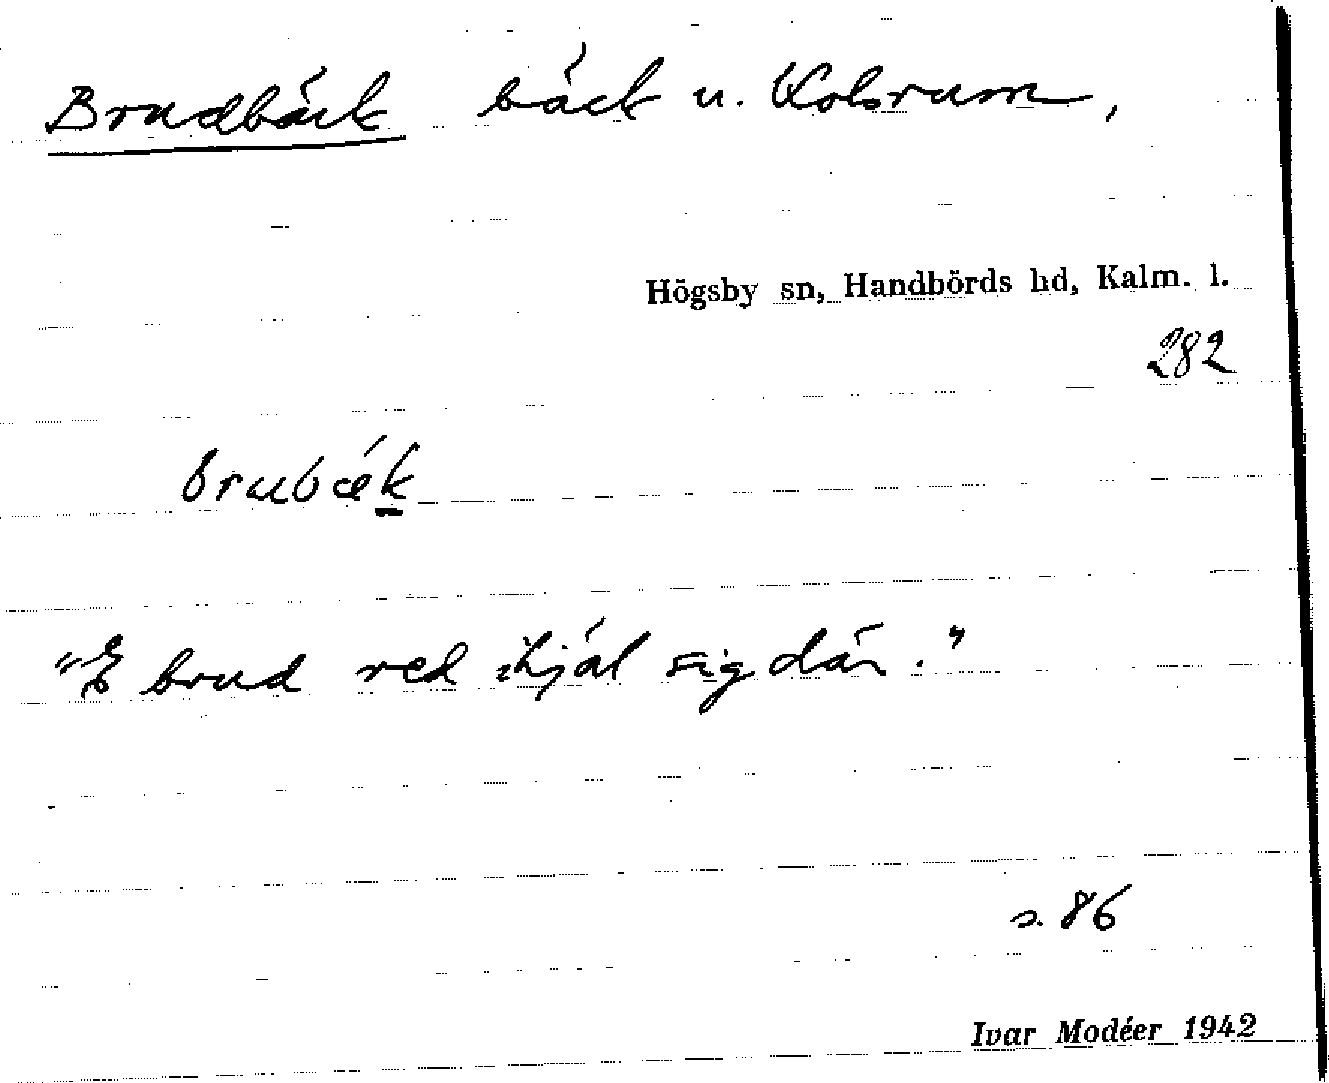 Brudbäck bäck u. Kolsrum,
Högsby sn, Handbörds hd, Kalm. l.
282
brubǽk
"E brud red ihjäl sig där."
s. 86
Ivar Modéer 1942